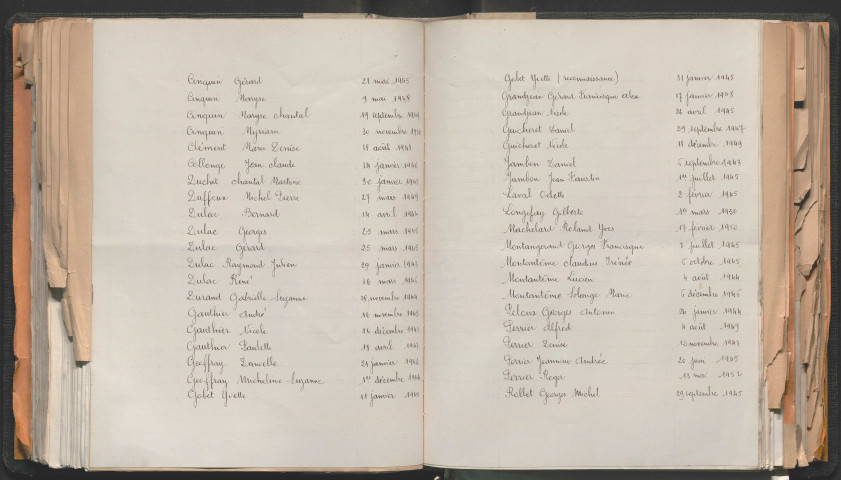 Cinquin Gérard 21 mai 1945
Cinquin Maryse 9 mai 1948
Cinquin Maryse Chantal 19 septembre
Cinquin Myriam 30 novembre
Clément Marie Denise 18 août
Collonge Jean Claude 14 janvier 1946
Duchet Chantal Martine 30 janvier
Duffour Michel Pierre 27 mars 1949
Dulac Bernard 14 avril
Dulac Georges 25 mars 1945
Dulac Gérard 25 mars 1945
Dulac Raymond Julien 29 janvier
Dulac René 16 mars
Durand Gabrielle Suzanne novembre
Gauthier André 16 novembre
Gauthier Nicole 12 décembre
Gauthier Paulette 18 avril
Geoffray Danielle 21 janvier
Geoffray Micheline Suzanne 1er décembre
Gobet Yvette 11 janvier
Gobet Yvette (reconnaissance) 31 janvier 1945
Grandjean Gérard Francisque 17 janvier 1948
Grandjean Nicole avril 1945
Guicheret Daniel 29 septembre 1947
Guicheret Nicole 18 décembre 1949
Jambon Daniel 6 septembre 1943
Jambon Jean Faustin 1er juillet 1945
Laval Odette 2 février 1945
Longefay Gilberte 1er mars 1950
Machelard Roland Yves 17 février 1950
Montangerand Georges Francisque juillet 1945
Montantême Claudius Irénée 6 octobre 1945
Montantême Lucien 4 août 1944
Montantême Solange Marie 6 décembre 1945
Pelous Georges Antonin janvier 1944
Perrier Alfred 4 août 1949
Perrier Denise 12 novembre
Perrier Jeannine Andrée 20 juin 1945
Perrier Roger 13 mai 1952
Rollet Georges Michel 29 septembre 1945